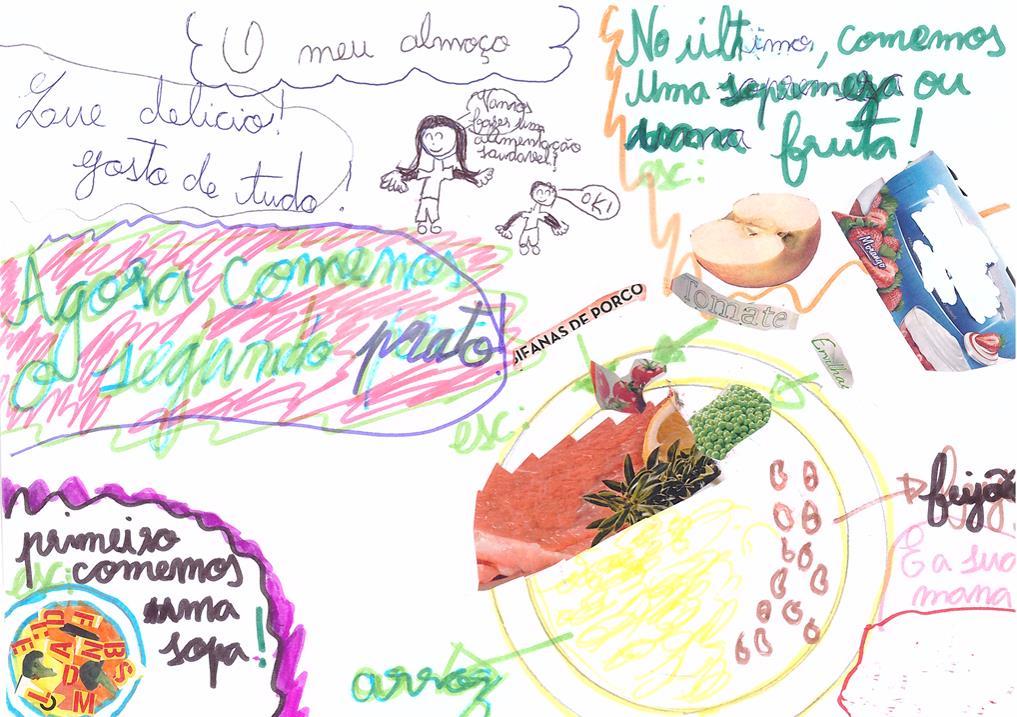 O meu almoço
Que delicio!
gosto de tudo!
Vamos
fazer uma
alimentação
saudável?
OK!
No último, comemos
uma sopremesa ou
uma fruta!
esc:
Morango
Agora, comemos
o segundo prato!
esc:
BIFANAS DE PORCO
Tomate
Ervilhas
feijão
E a sua
mana
primeiro
esc: comemos
uma
sopa!
arroz